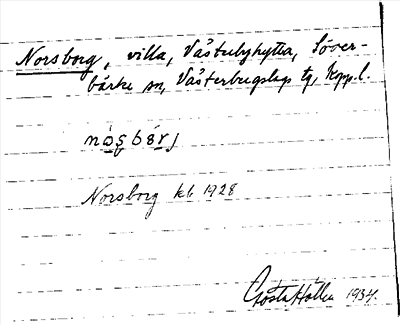 Norsborg, villa, Västubyhyttan, Söder-
bärke sn, Västerbergslags tg, Kopp.l.
nòşbärj
Norsborg kb 1928
Gösta Hallén 1934.